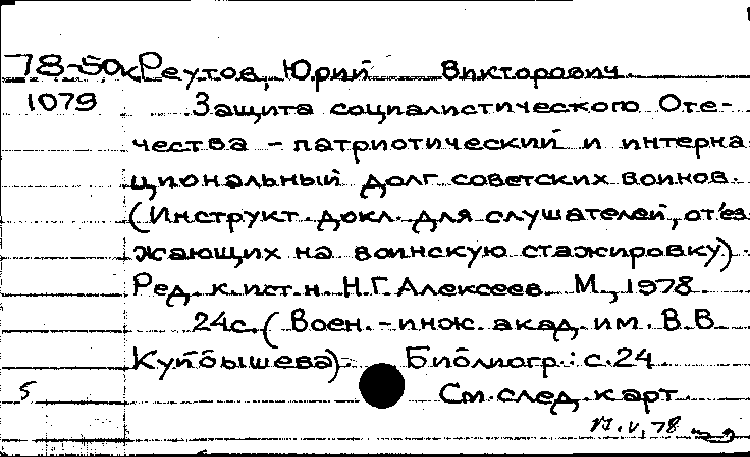 78-50к Реутов, Юрий Викторович
1079 Защита социалистического Оте-
чества - патриотический и интерна
циональный долг советских воинов.
(Инструкт. докл. для слушателей, отъез
жающих на воинскую стажировку)
Ред. к. ист. н. Н.Г. Алексеев. М., 1978.
24с. (Воен.-инж. акад. им. В.В.
Куйбышева). Библиогр.: с.24
5 См. след. карт
V, 78